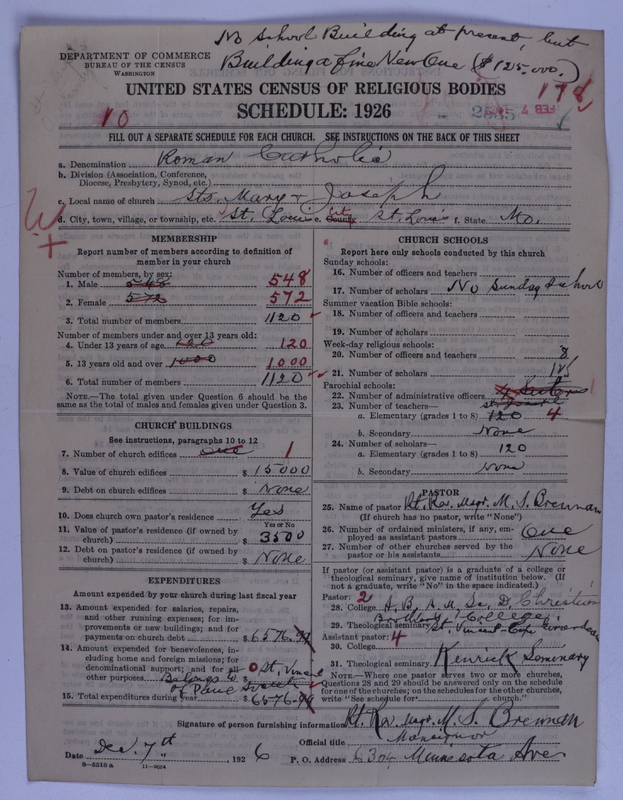 No School Building at present, but
Building a fine New One ($125,000.)
DEPARTMENT OF COMMERCE
BUREAU OF THE CENSUS
WASHINGTON
UNITED STATES CENSUS OF RELIGIOUS BODIES
178
10
SCHEDULE: 1926
FILL OUT A SEPARATE SCHEDULE FOR EACH CHURCH. SEE INSTRUCTIONS ON THE BACK OF THIS SHEET
a. Denomination Roman Catholic
b. Division (Association, Conference,
Diocese, Presbytery, Synod, etc.)
c. Local name of church Sts. Mary & Joseph
d. City, town, village, or township, etc. St. Louis e. County City St. Louis f. State Mo.
MEMBERSHIP
Report number of members according to definition of
member in your church
Number of members, by sex:
1. Male 548
2. Female 572 572
3. Total number of members 1120
Number of members under and over 13 years old:
4. Under 13 years of age 120
5. 13 years old and over 1000 1000
6. Total number of members 1120
NOTE.—The total given under Question 6 should be
same as the total of males and females given under Question 3.
CHURCH BUILDINGS
See instructions, paragraphs 10 to 12
7. Number of church edifices One 1
8. Value of church edifices $ 15000
9. Debt on church edifices $ None
10. Does church own pastor's residence Yes
Yes or No
11. Value of pastor's residence (if owned by
church) $ 3500
12. Debt on pastor's residence (if owned by
church) $ None
EXPENDITURES
Amount expended by your church during last fiscal year
13. Amount expended for salaries, repairs,
and other running expenses; for im-
provements or new buildings; and for
payments on church debt $ 6576.
14. Amount expended for benevolences, in-
cluding home and foreign missions; for
denominational support; and for all
other purposes Belongs to St. Vincent
of Paul Society
15. Total expenditures during year $ 6576.
CHURCH SCHOOLS
Report here only schools conducted by this church
Sunday schools:
16. Number of officers and teachers
17. Number of scholars No Sunday School
Summer vacation Bible schools:
18. Number of officers and teachers
19. Number of scholars
Week-day religious schools:
20. Number of officers and teachers 8
21. Number of scholars
Parochial schools:
22. Number of administrative officers 1
23. Number of teachers—
a. Elementary (grades 1 to 8) 120 4
b. Secondary None
24. Number of scholars—
a. Elementary (grades 1 to 8) 120
b. Secondary None
PASTOR
25. Name of pastor Rt. Rev. Msgr. M. S. Brennan
(If church has no pastor, write "None")
26. Number of ordained ministers, if any, em-
ployed as assistant pastors One
27. Number of other churches served by the
pastor or his assistants None
If pastor (or assistant pastor) is a graduate of a college or
theological seminary, give name of institution below. (If
not a graduate, write "No" in the space indicated.)
Pastor: 2
28. College A. B., A. M., Sc. D. Christian
Brothers College
29. Theological seminary St. Vincent Cape Girardeau
Assistant pastor: 4
30. College
31. Theological seminary Kenrick Seminary
NOTE.—Where one pastor serves two or more churches,
Questions 28 and 29 should be answered only on the schedule
for one of the churches; on the schedules for the other churches,
write "See schedule for church.
Signature of person furnishing information Rt. Rev. Msgr. M. S. Brennan
Official title
Date Dec. 7th, 1926 P. O. Address 6304 Minnesota Ave
8—5313 a 11—9024